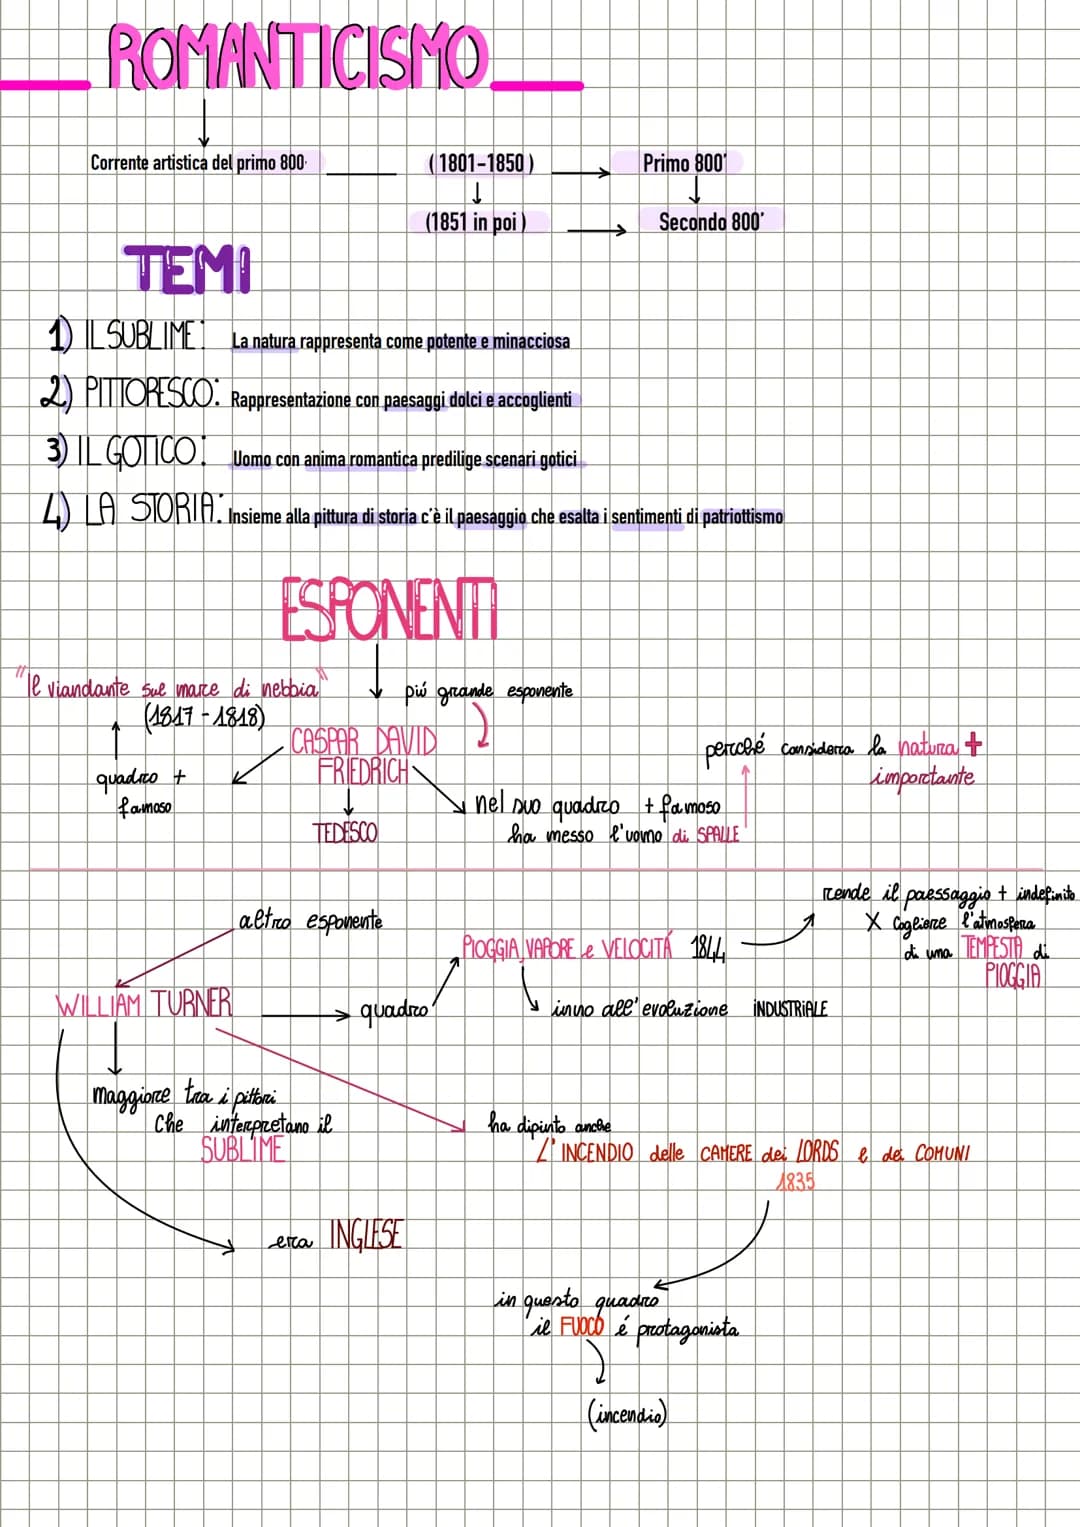 ROMANTICISMO
Corrente artistica del primo 800'
(1801-1850)
Primo 800'
(1851 in poi)
Secondo 800'
TEMI
1) IL SUBLIME: La natura rappresenta come potente e minacciosa
2) PITTORESCO: Rappresentazione con paesaggi dolci e accoglienti
3) IL GOTICO: Uomo con anima romantica predilige scenari gotici
4) LA STORIA: Insieme alla pittura di storia c'è il paesaggio che esalta i sentimenti di patriottismo
ESPONENTI
"Il viandante sul mare di nebbia"
(1817-1818)
più grande esponente
quadro +
famoso
CASPAR DAVID
FRIEDRICH
TEDESCO
nel suo quadro + famoso
ha messo l'uomo di SPALLE
perché considera la natura +
importante
altro esponente
WILLIAM TURNER
quadro
PIOGGIA, VAPORE e VELOCITÁ 1844
rende il paessaggio + indefinito
X Cogliere l'atmosfera
di una TEMPESTA di
PIOGGIA
inno all'evoluzione iNDUSTRiALE
maggiore tra i pittori
Che interpretano il
SUBLIME
ha dipinto anche
L'INCENDIO delle CAMERE dei LORDS e dei COMUNI
1835
era INGLESE
in questo quadro
il FUOCO é protagonista
(incendio)